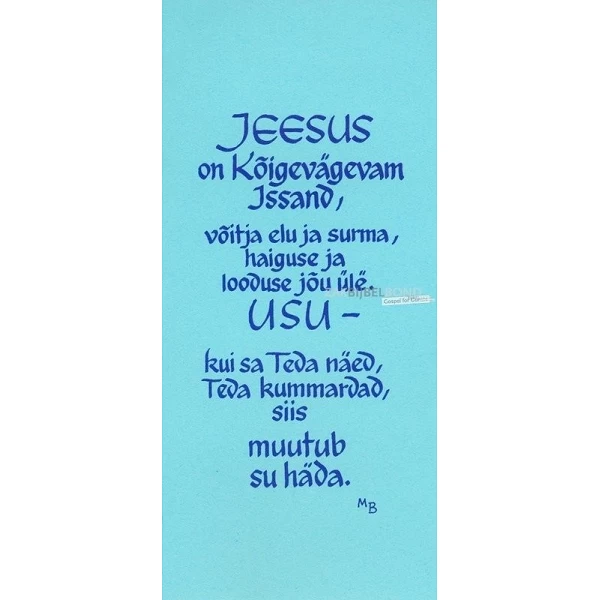 JEESUS
on Kõigevägevam
Issand,
võitja elu ja surma,
haiguse ja
looduse jõu üle.
BIJBELBOND
Gospel for Guests
USU –
kui sa Teda näed,
Teda kummardad,
siis
muutub
su häda.
MB